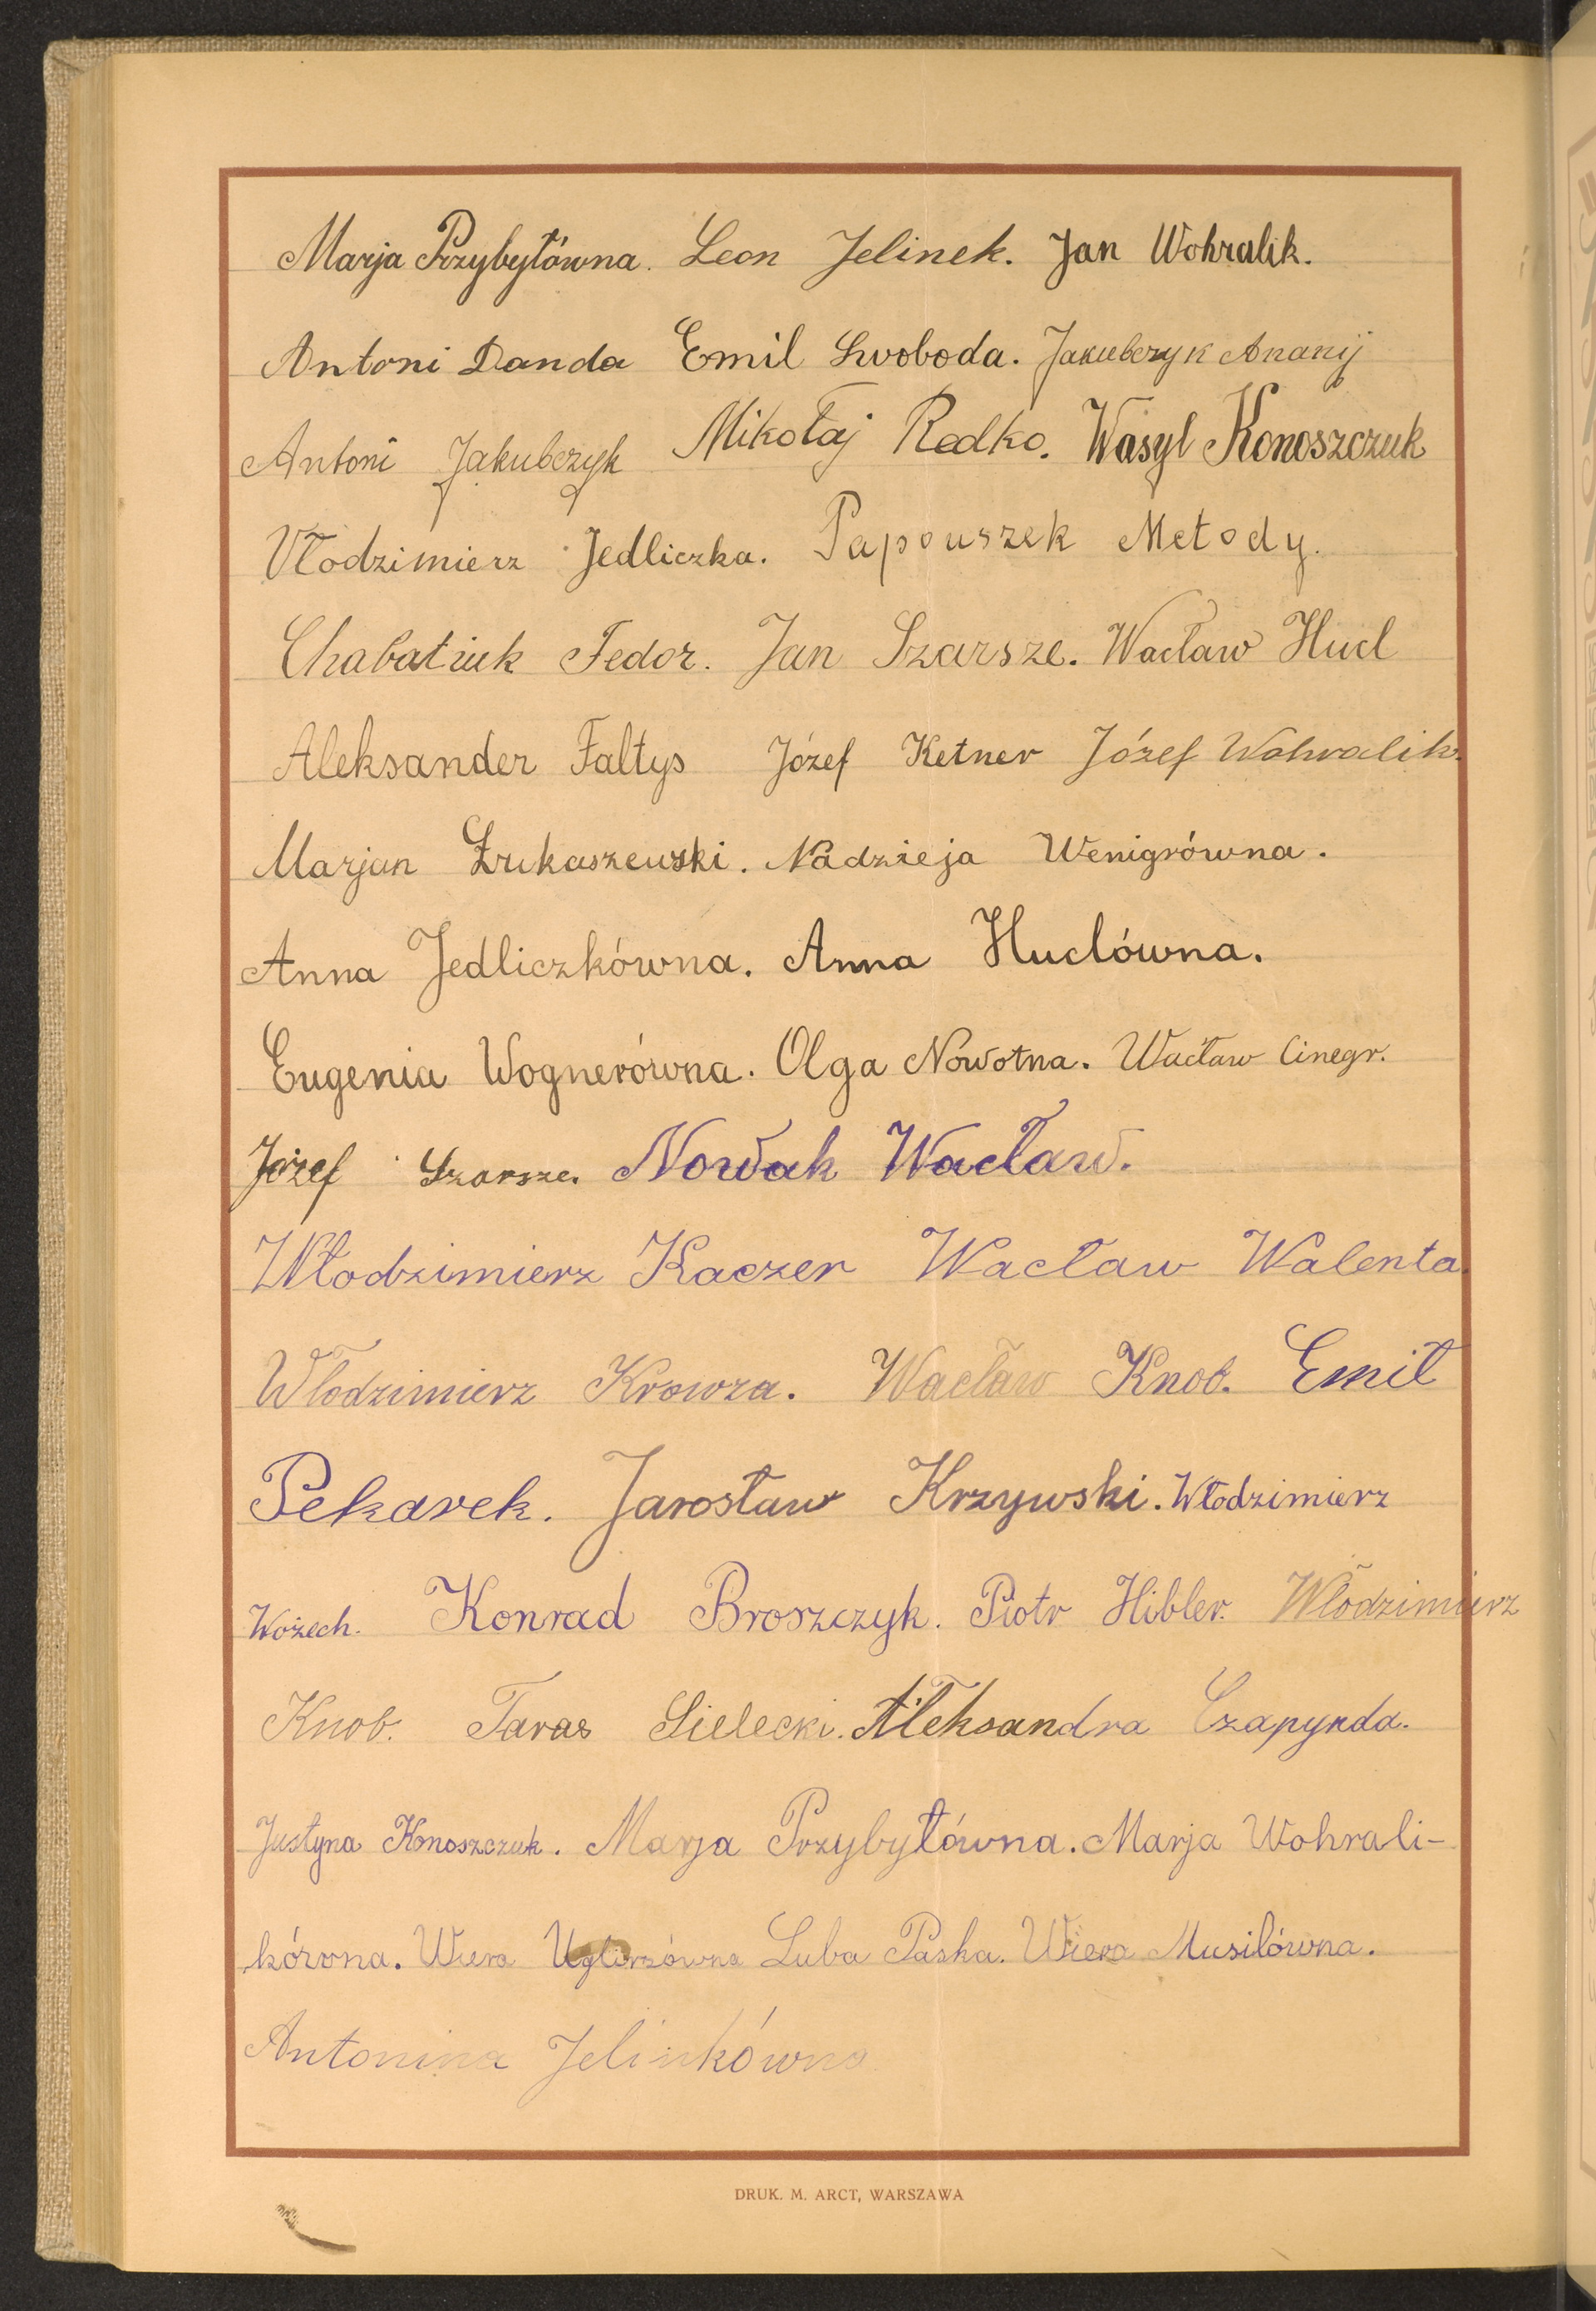 Marja Przybyłówna. Leon Jelinek. Jan Wohralik.
Antoni Danda Emil Swoboda. Jakubczyk Ananij
Antoni Jakubczyk Mikołaj Redko. Wasyl Konoszczuk
Włodzimierz Jedliczka. Papouszek Metody.
Chabatiuk Fedor. Jan Szarsze. Wacław Hucl
Aleksander Faltys Józef Ketner Józef Wohralik.
Marjan Łukaszewski. Nadzieja Wenigrówna.
Anna Jedliczkówna. Anna Huclówna.
Eugenia Wognerówna. Olga Nowotna. Wacław Cinegr.
Józef Szarsze. Nowak Wacław.
Włodzimierz Kaczer Wacław Walenta.
Włodzimierz Krowza. Wacław Knob. Emil
Pekarek. Jarosław Krzywski. Włodzimierz
Wożech. Konrad Broszczyk. Piotr Hibler. Włodzimierz
Knob. Taras Sielecki. Aleksandra Czapynda.
Justyna Konoszczuk. Marja Przybyłówna. Marja Wohrali-
kówna. Wiera Luba Paska. Wiera Musilówna.
Antonina Jelinkówna
DRUK. M. ARCT, WARSZAWA